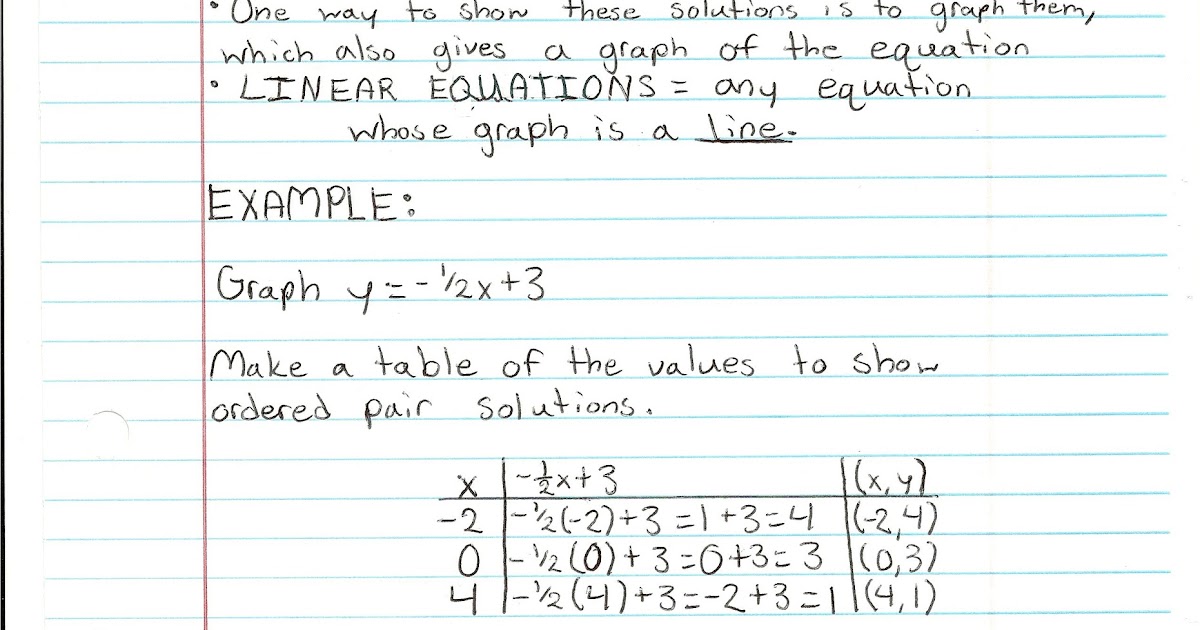 • One way to show these solutions is to graph them,
which also gives a graph of the equation
• LINEAR EQUATIONS = any equation
whose graph is a line.
EXAMPLE:
Graph y=-1/2x+3
Make a table of the values to show
ordered pair solutions.
x | -1/2x+3 | (x,y)
-2 | -1/2(-2)+3=1+3=4 | (-2,4)
0 | -1/2(0)+3=0+3=3 | (0,3)
4 | -1/2(4)+3=-2+3=1 | (4,1)